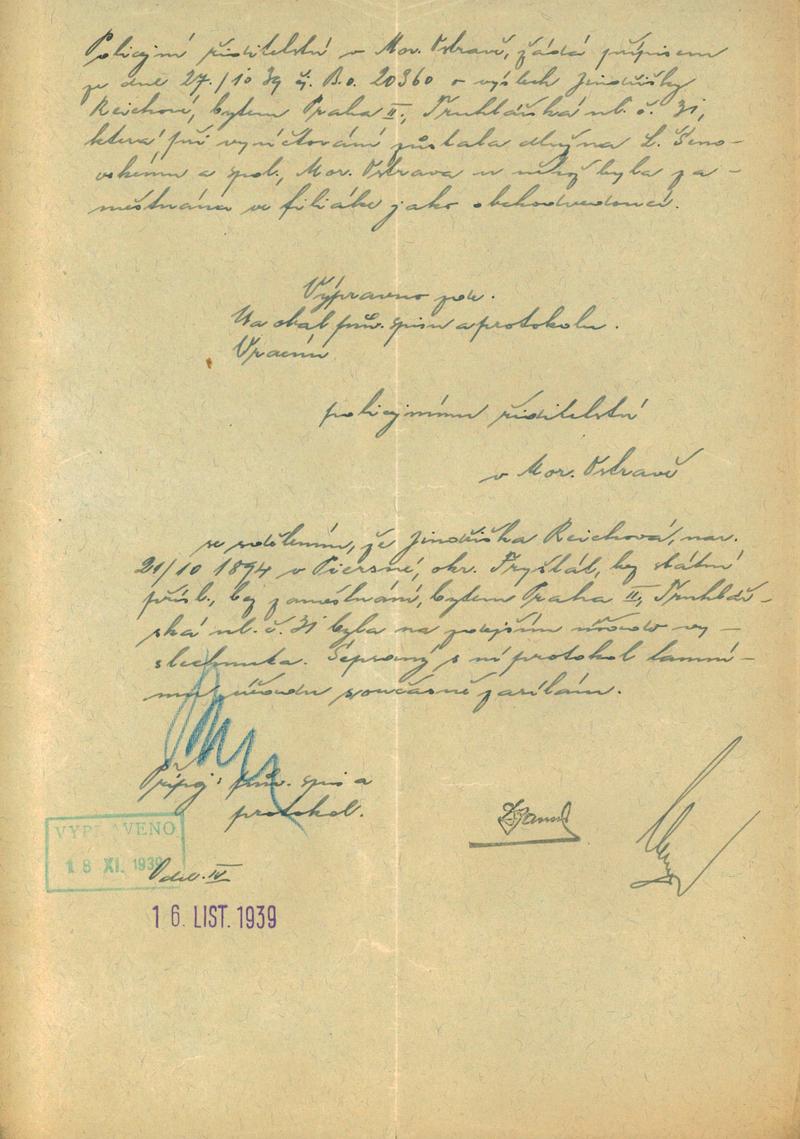 Policejní ředitelství v Mor. Ostravě, žádá přípisem
ze dne 27./10 39 čj. B.o. 20360 o výslech Jindřišky
Reichové, bytem Praha II., Truhlářská ul. č. 31,
která při vyúčtování zůstala dlužna L. Šeno-
vskému a spol., Mor. Ostrava u něhož byla za-
městnána ve filiálce jako obchodvedoucí.
Výpravno zde.
Na obal pův. spisu a protokolu.
Vracím
policejnímu ředitelství
v Mor. Ostravě
se sdělením, že Jindřiška Reichová, nar.
21/10 1894 v Piersné, okr. Fryštát, bez státní
přísl., bez zaměstnání, bytem Praha II., Truhlář-
ská ul. č. 31 byla na zdejším úřadě vy-
slechnuta. Sepsaný s ní protokol tamní-
mu úřadu současně zasílám.
Připoj: pův. spis a
protokol.
VYPRAVENO
18 XI. 1939
Odděl. IV
16. LIST. 1939